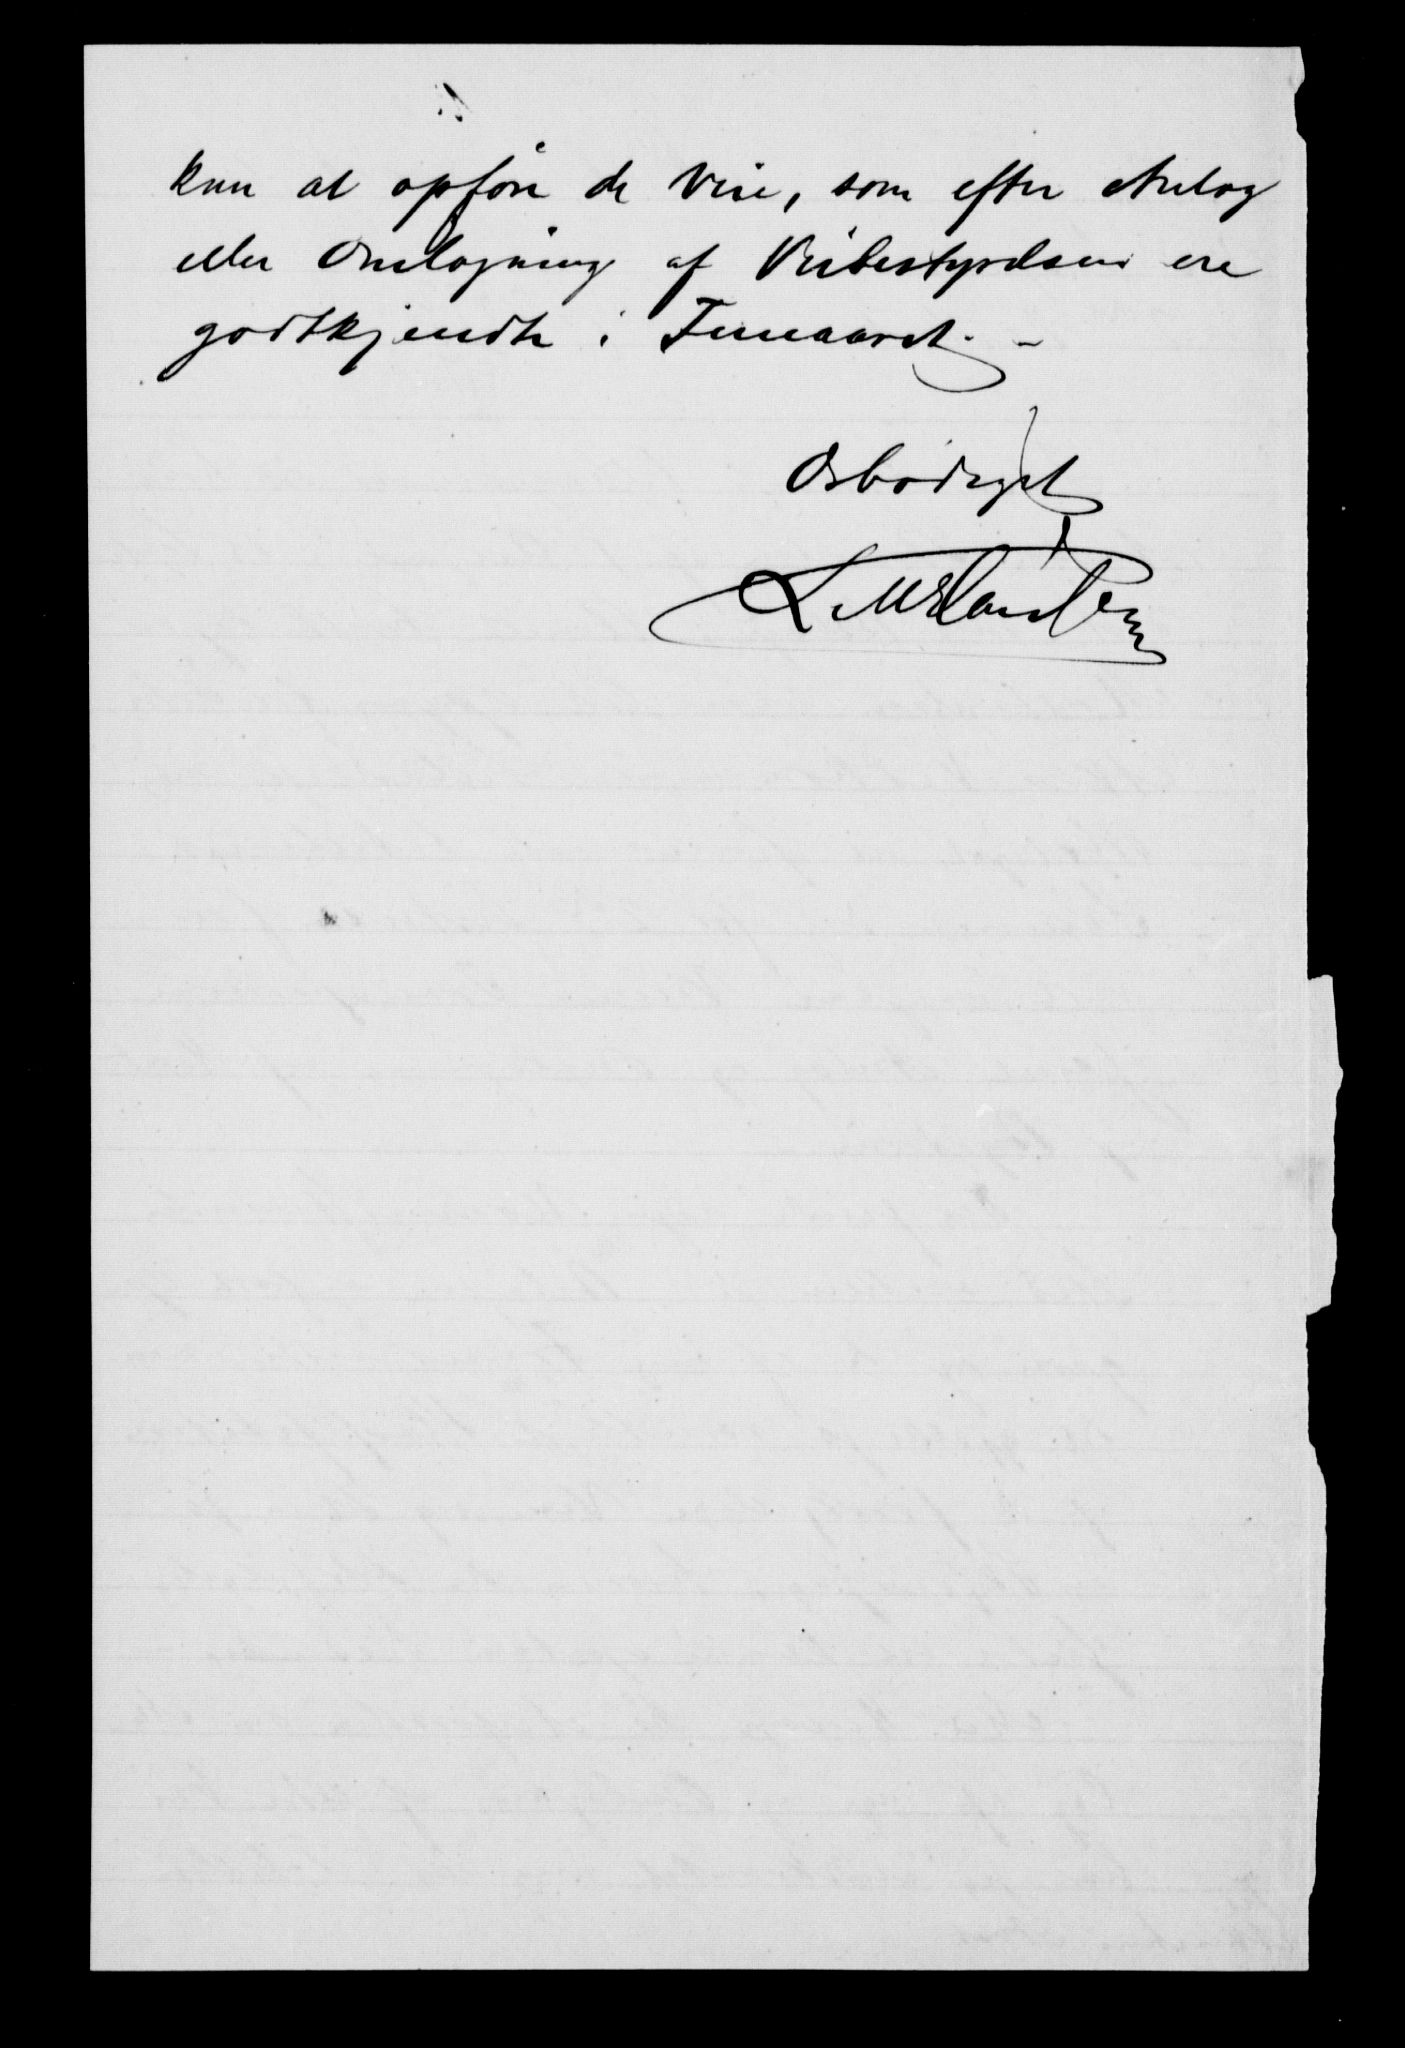 kun at opføre de Veie, som efter Anlæg
eller Omlægning af Veibestyrelsen ere
godkjendte i Femaaret. -
Ærbødigst